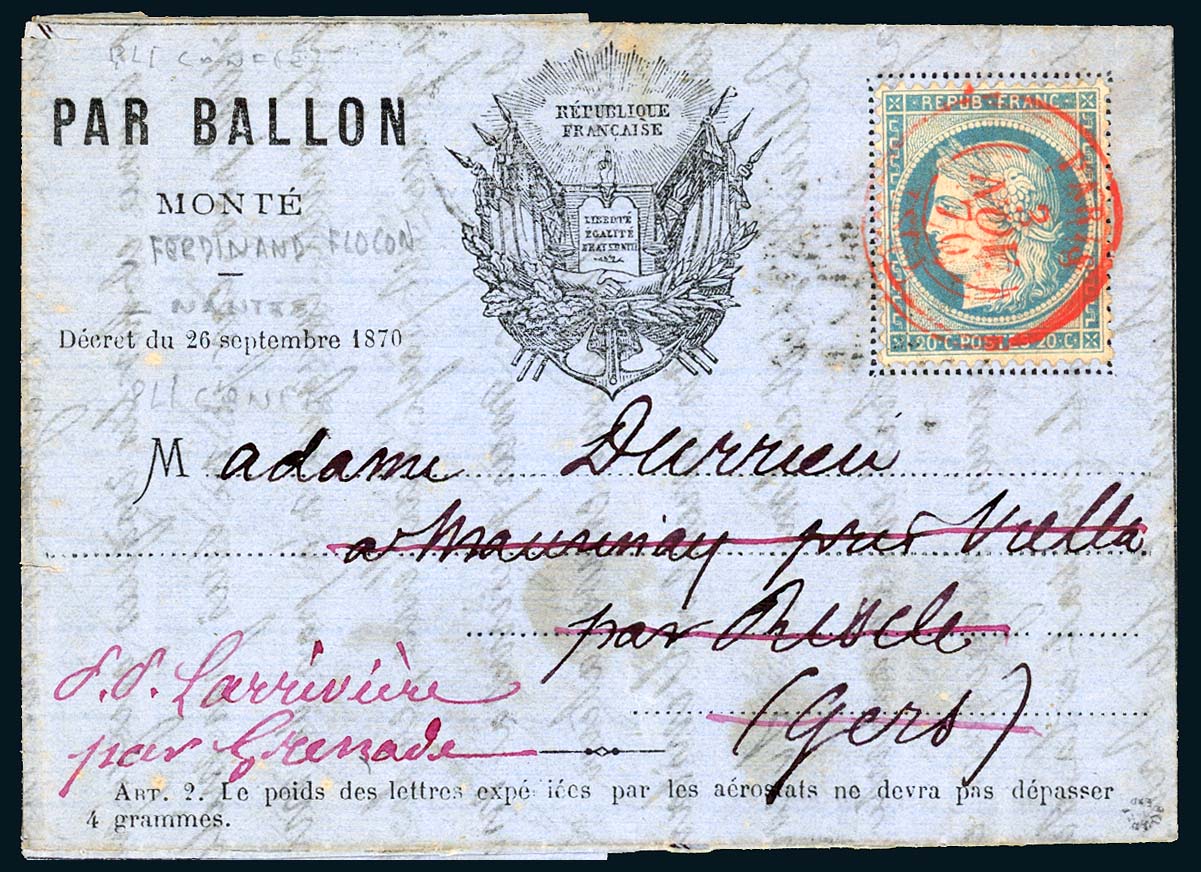 PAR BALLON
MONTÉ
FERDINAND FLOCON
NANTES
Décret du 26 septembre 1870
PLI CONF
RÉPUBLIQUE
FRANÇAISE
LIBERTÉ
ÉGALITÉ
FRATERNITÉ
REPUB·FRANC·
20·C·POSTES·20·C
PARIS
2
NOV
70
Madame Durrieu
à Maumusay près Viella
par Riscle
(Gers)
P.P. Larrivière
par Grenade
ART. 2. Le poids des lettres expédiées par les aérostats ne devra pas dépasser
4 grammes.